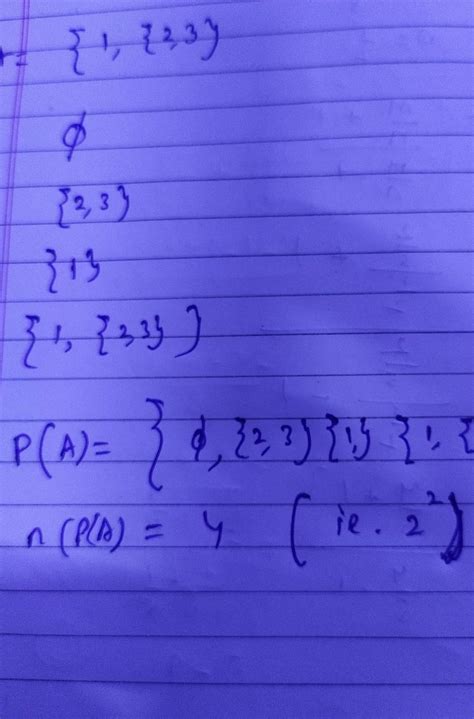 = { 1, {2,3}
ϕ
{2,3}
{1}
{1, {2,3} }
P(A)= { ϕ, {2,3} {1,} {1, {
n(P(A) = 4 ( ie. 2²)